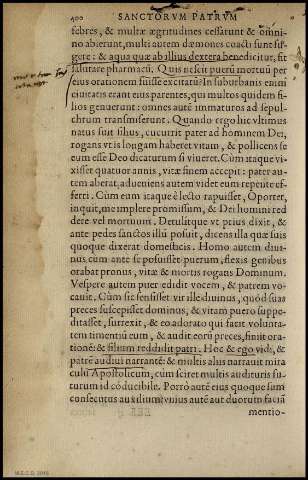 400 SANCTORVM PATRVM
febres, & multæ ægritudines cessãt & omni-
no abierunt, multi autem dæmones coacti sunt fu-
gere: & aqua quæ ab illius dextera benedicitur, fit
salutare pharmacũ. Quis nescit puerũ mortuũ per
eius orationem fuisse excitatũ? In suburbanis enim
ciuitatis erant eius parentes, qui multos quidem fi-
lios genuerunt: omnes autẽ immaturos ad sepul-
chrum transmiserunt. Quando ergo huic vltimus
natus fuit filius, cucurrit pater ad hominem Dei,
rogans vt is longam haberet vitam, & pollicens se
eum esse Deo dicaturum si viueret. Cùm itaque vi-
xisset quatuor annis, vitæ finem accepit: pater au-
tem aberat, adueniens autem videt eum repente ef-
ferri. Cùm eum itaque è lecto rapuisset, Oportet,
inquit, me implere promissum, & Dei homini red
dere vel mortuum. Detulitque vt prius dixit, &
ante pedes sanctos illũ posuit, dicens illa quæ suis
quoque dixerat domesticis. Homo autem diui-
nus cùm ante se posuisset puerum, flexis genibus
orabat pronus, vitæ & mortis rogans Dominum.
Vespere autem puer edidit vocem, & patrem vo-
cauit. Cùm sic sensisset vir ille diuinus, quòd suas
preces suscepisset dominus, & vitam puero suppe-
ditasset, surrexit, & eo adorato qui facit volunta-
tem timentiũ eum, & audit eorũ preces, finiit ora-
tionẽ: & filium reddidit patri. Hoc & ego vidi, &
patrẽ audiui narrantẽ: & multis aliis narrauit mira
culũ Apostolicum, cùm scirem multis audituris fu-
turum id cõducibile. Porrò autẽ eius quoque sum
consecutus auxilium: vnius autẽ aut duorum faciã
mentio-